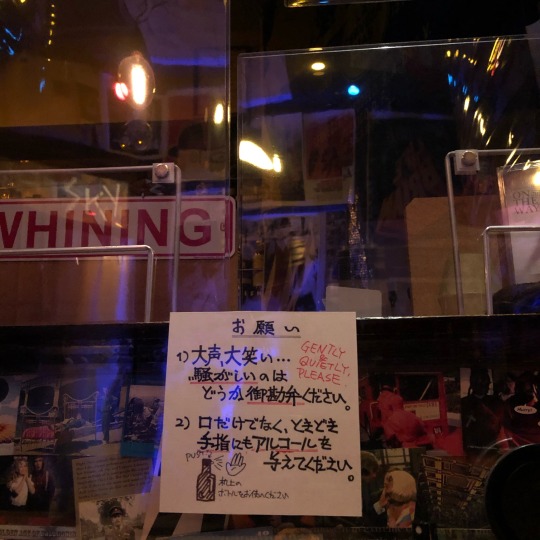 SKY
WHINING
お願い
1) 大声、大笑い...
騒がしいのは
どうか、御勘弁ください。
GENTLY
&
QUIETLY,
PLEASE.
2) 口だけでなく、ときどき
手指にもアルコールを
与えてください。
PUSH
机上の
ボトルをお使いください